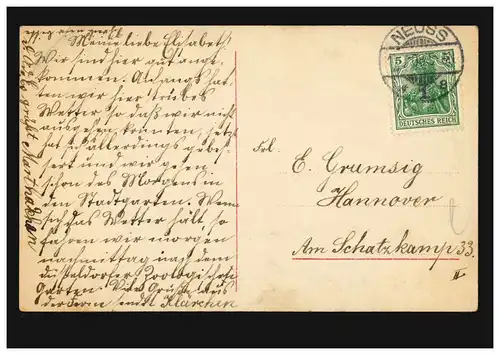 Meine liebe Elisabeth!
Wir sind hier gut ange-
kommen. Anfangs hat-
ten wir hier trübes
Wetter so daß wir nicht
ausgehen konnten, jetzt
hat es allerdings gebes-
sert und wir gehen
schon des Morgens in
den Stadtgarten. Wenn
sich das Wetter hält, so
fahren wir morgen
nachmittag nach dem
Düsseldorfer Zoologischen
Garten. Viele Grüße aus
der Ferne sendet Klärchen
grüßt
NEUSS
5 5
DEUTSCHES REICH
Frl.
E. Grumsig
Hannover
Am Schatzkamp 33.
II